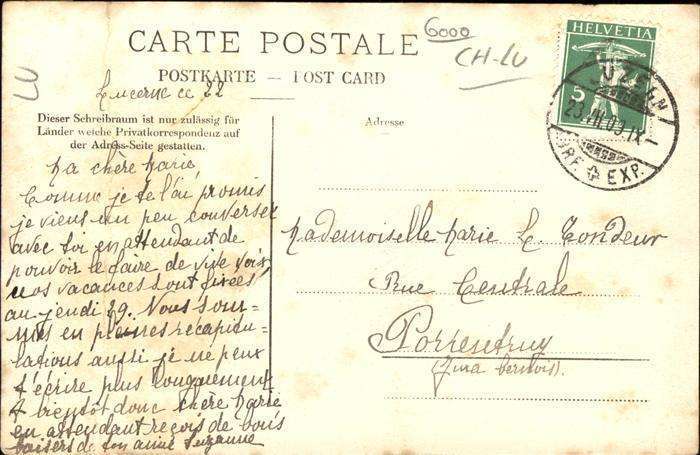 CARTE POSTALE
POSTKARTE — POST CARD
6000
CH-LU
LU
HELVETIA
5
LUZERN
23.VII.09.IX-
BRF. EXP.
Lucerne ce 22
Dieser Schreibraum ist nur zulässig für
Länder welche Privatkorrespondenz auf
der Adress-Seite gestatten.
Adresse
Ma chère Marie,
Comme je te l'ai promis
je viens un peu converser
avec toi en attendant de
pouvoir le faire de vive voix
nos vacances sont fixées
au jeudi 29. Nous som-
mes en pleines récapitu-
lations aussi je ne peux
t'écrire plus longuement
A bientôt donc chère Marie
en attendant reçois de bons
baisers de ton amie Suzanne
Mademoiselle Marie L. Tondeur
Rue Centrale
Porrentruy
(Jura bernois).